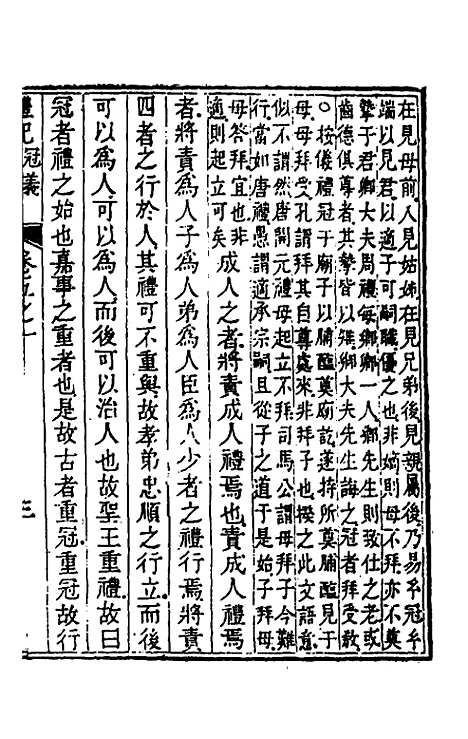 在見母前入見姑姊在見兄弟後見親屬後乃易乎冠乎
端以見君以適子可嗣醮優之也非嫡則母不拜亦不奠
摯于君卿大夫周禮每鄉卿一人鄉先生則致仕之老或
齒德俱尊者其摯皆以雉卿大夫先生誨之冠者拜受敎
○按儀禮冠于廟子以脯醢奠廟訖遂持所奠脯醢見于
母母拜受孔謂拜其自尊處來非拜子也揆之此文語意
似不謂然唐開元禮母立不拜司馬公謂母拜子今難
行當如唐禮愚謂適承宗嗣且從子之道于是始子拜母
母答拜宜也非
適則起立可矣
成人之者將責成人禮焉也責成人禮焉
者將責爲人子爲人弟爲人臣爲人少者之禮行焉將責
四者之行於人其禮可不重與故孝弟忠順之行立而後
可以爲人可以爲人而後可以治人也故聖王重禮故曰
冠者禮之始也嘉事之重者也是故古者重冠重冠故行
禮記冠義
卷五之一
三